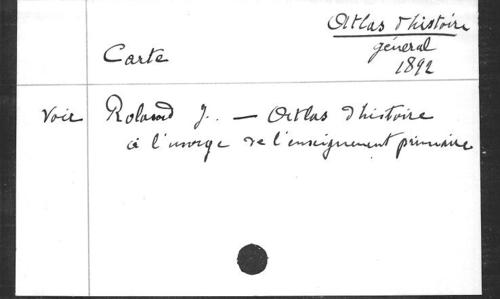 Atlas d'histoire
général
1892
Carte
Voir Roland J. — Atlas d'histoire
à l'usage de l'enseignement primaire